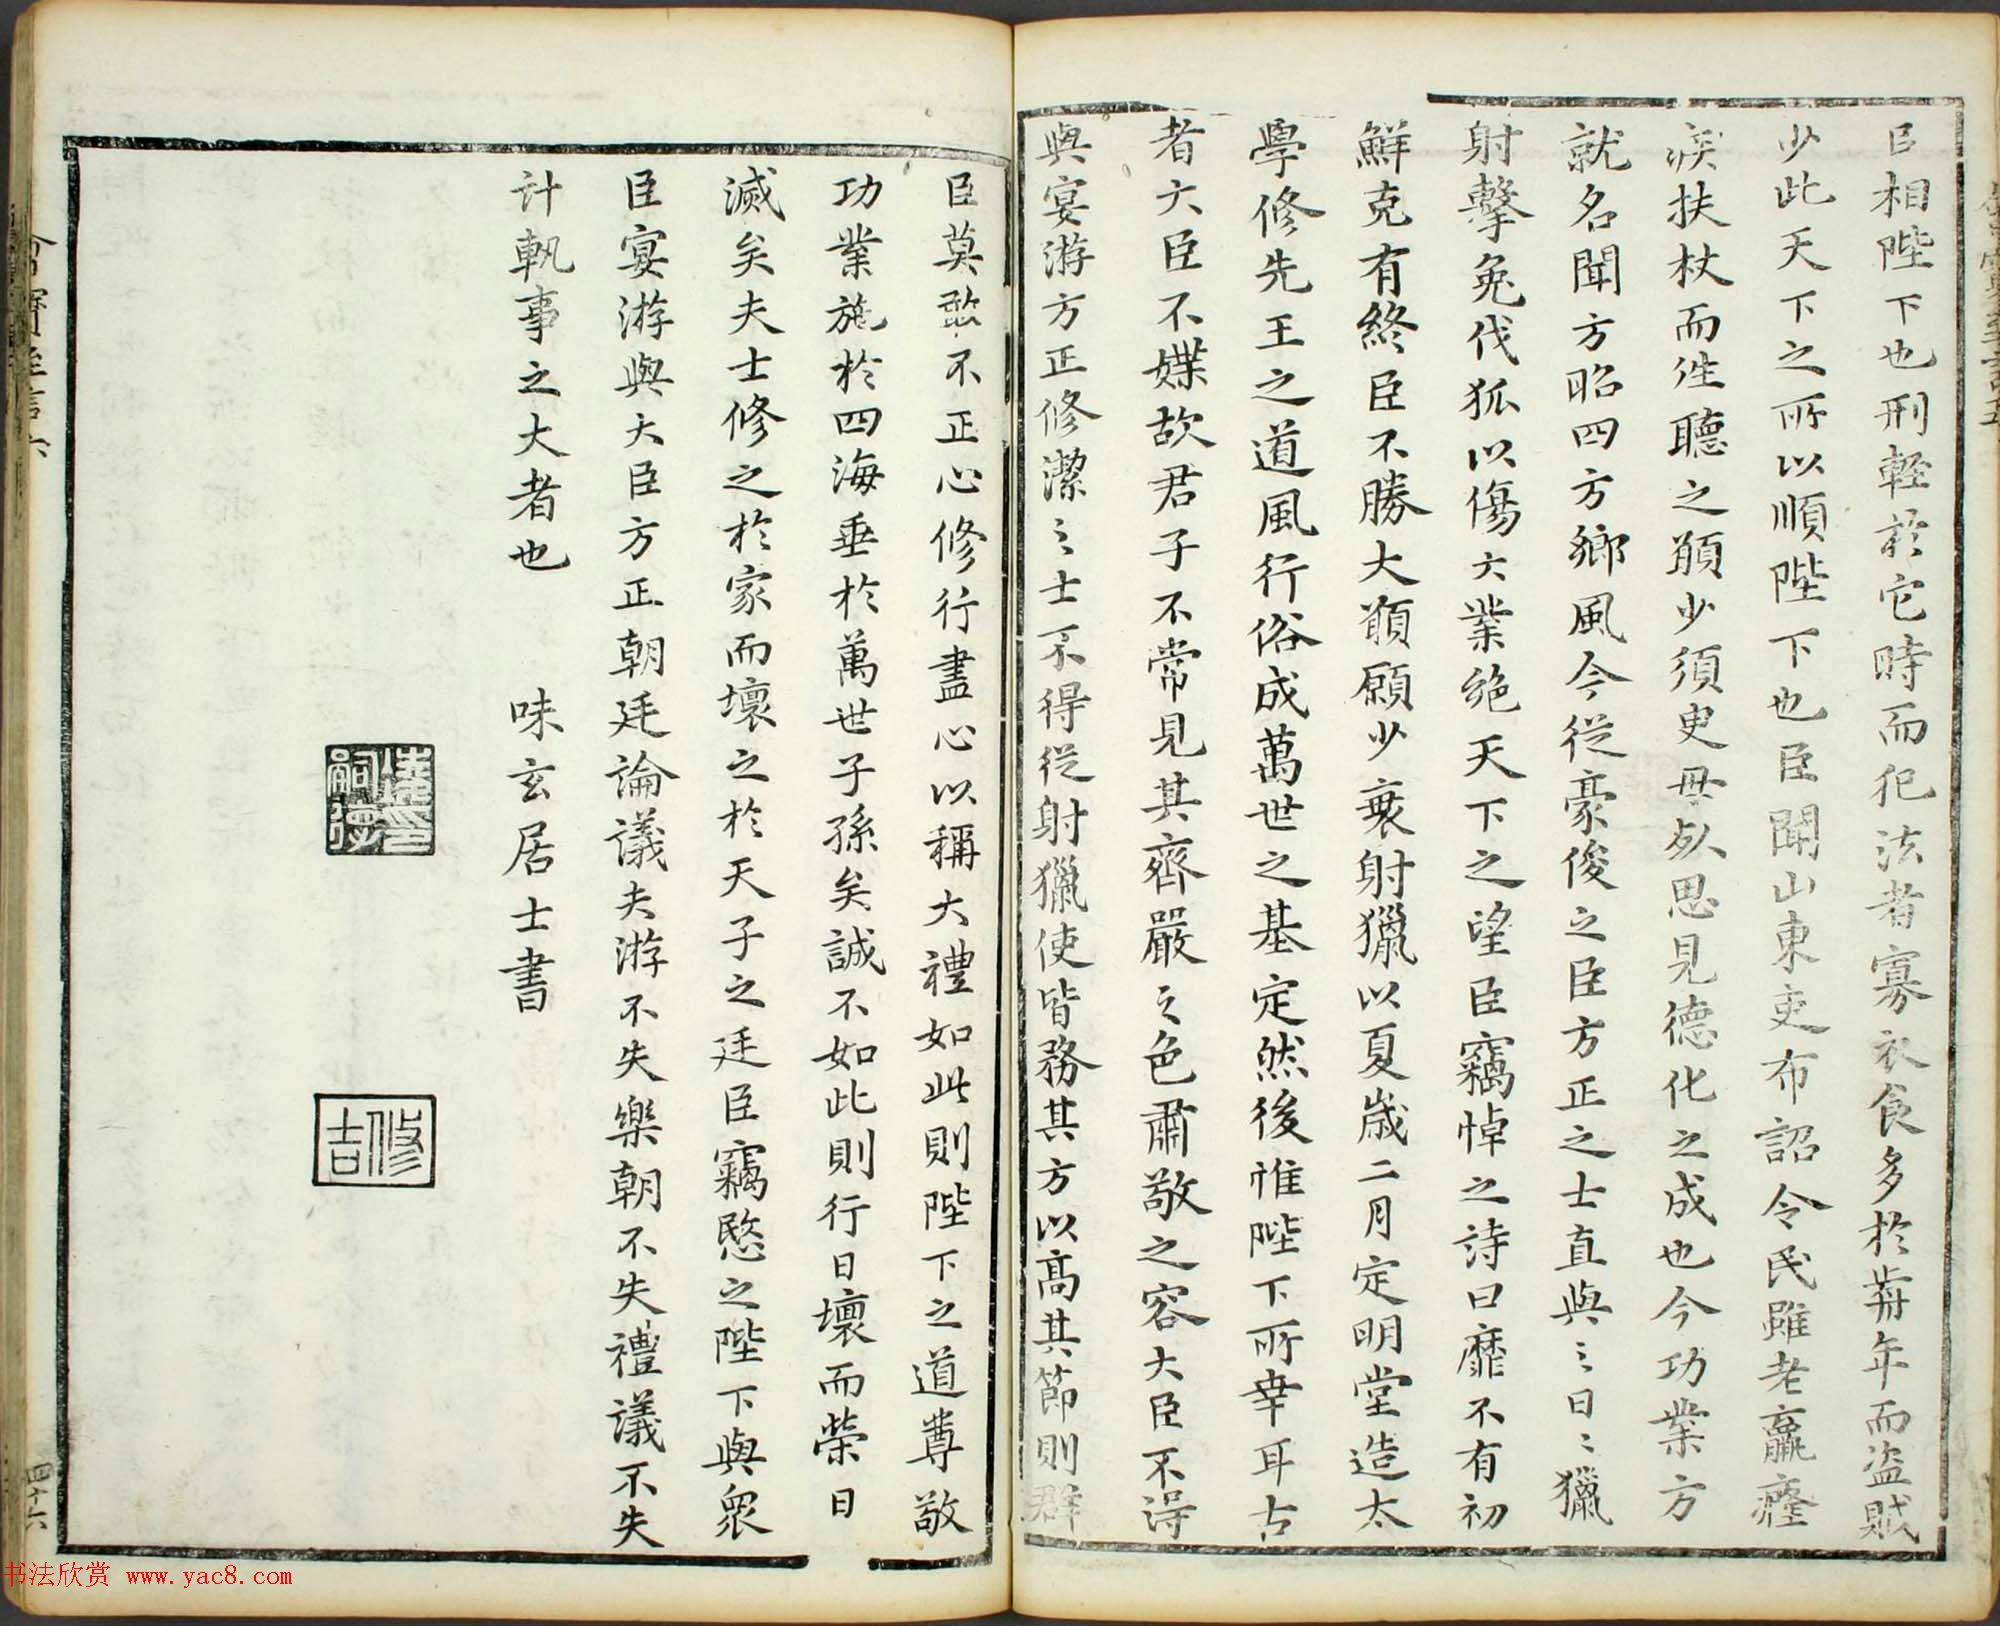 臣相陛下也刑輕於它時而犯法者寡衣食多於前年而盜賊
少此天下之所以順陛下也臣聞山東吏布詔令民雖老羸癃
疾扶杖而徃聽之願少須臾毋死思見德化之成也今功業方
就名聞方昭四方鄉風今從豪俊之臣方正之士直與之日日獵
射擊兔伐狐以傷大業絕天下之望臣竊悼之詩曰靡不有初
鮮克有終臣不勝大願願少衰射獵以夏歲二月定明堂造太
學修先王之道風行俗成萬世之基定然後惟陛下所幸耳古
者大臣不媟故君子不常見其齊嚴之色肅敬之容大臣不得
與宴游方正修潔之士不得從射獵使皆務其方以高其節則群
臣莫敢不正心修行盡心以稱大禮如此則陛下之道尊敬
功業施於四海垂於萬世子孫矣誠不如此則行日壞而榮日
滅矣夫士修之於家而壞之於天子之廷臣竊愍之陛下與眾
臣宴游與大臣方正朝廷論議夫游不失樂朝不失禮議不失
計軌事之大者也 味玄居士書
修吉
四十六
书法欣赏 www.yac8.com